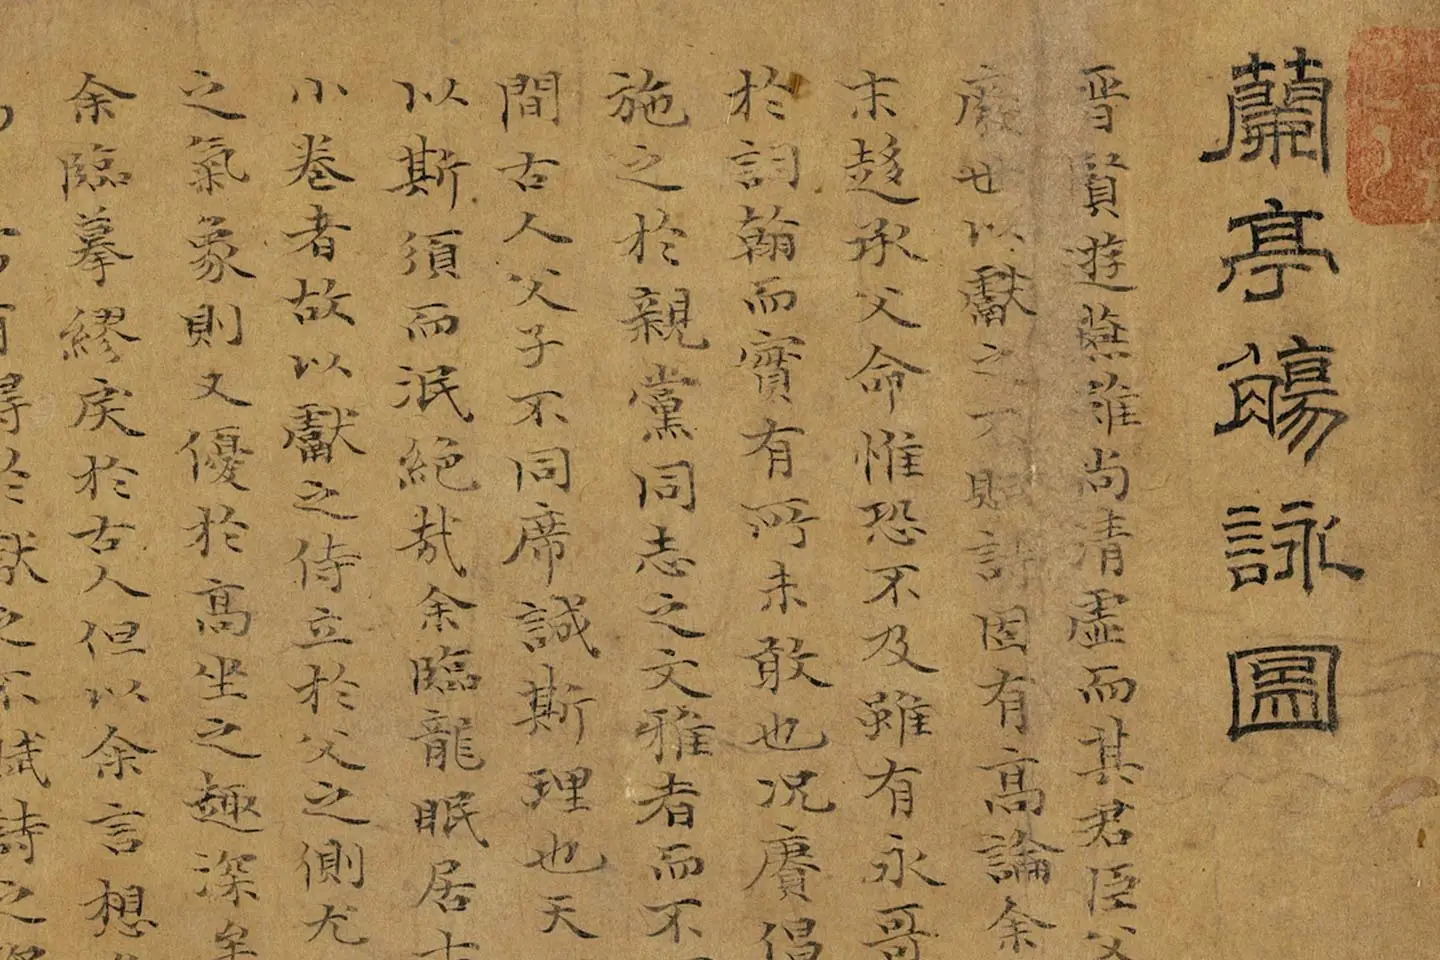 蘭亭觴詠圖
晉賢遊燕雖尚清虛而其君臣父
廢也以獻之不賦詩固有高論余
末趍承父命惟恐不及雖有永哥
於詞翰而實有所未敢也况賡倡
施之於親黨同志之文雅者而不
間古人父子不同席誠斯理也天
以斯須而泯絕哉余臨龍眠居士
小卷者故以獻之侍立於父之側尤
之氣象則又優於高坐之趣深至
余臨摹繆戾於古人但以余言想
得於獻之不賦詩之